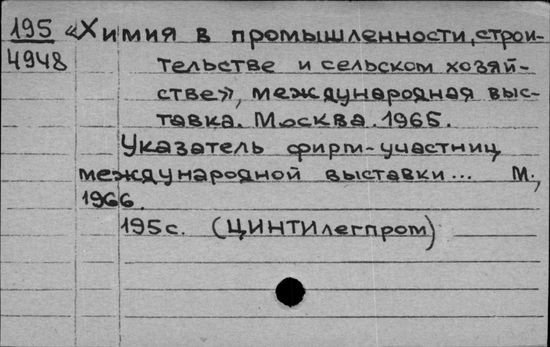 195 «Химия в промышленности, строи-
4948 тельстве и сельском хозяй-
стве», международная выс-
тавка. Москва. 1965.
Указатель фирм-участниц
международной выставки... М.,
1966.
195 с. (ЦИНТИлегпром)